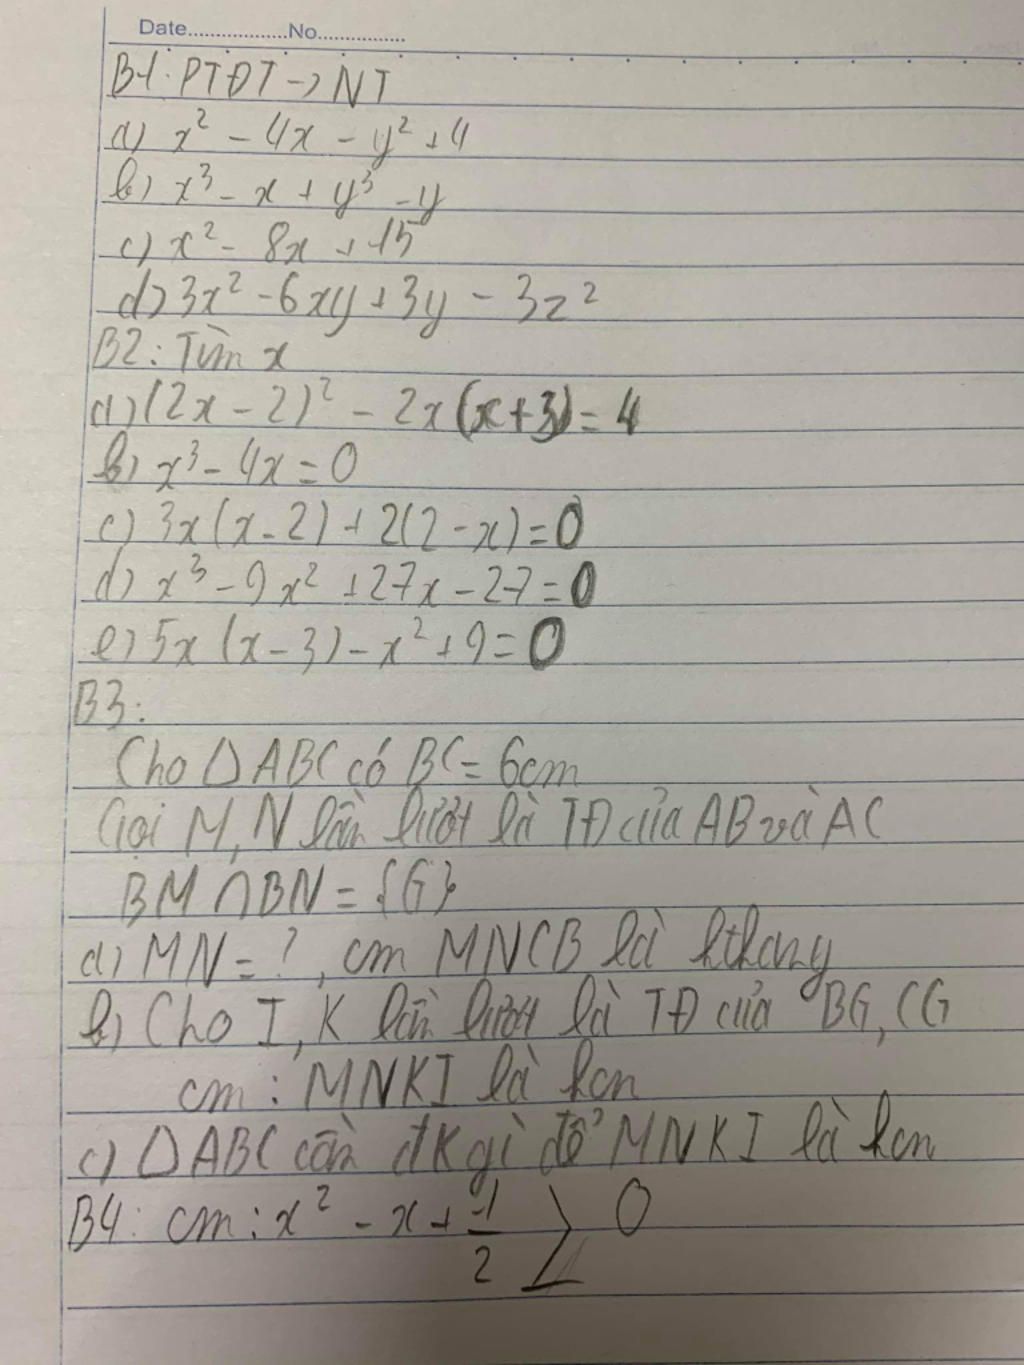 Date.................No...............
B1: PTĐT → NT
a) x² - 4x - y² + 4
b) x³ - x + y³ - y
c) x² - 8x + 15
d) 3x² - 6xy + 3y - 3z²
B2: Tìm x
a) (2x - 2)² - 2x(x+3) = 4
b) x³ - 4x = 0
c) 3x(x - 2) + 2(2 - x) = 0
d) x³ - 9x² + 27x - 27 = 0
e) 5x (x - 3) - x² + 9 = 0
B3:
Cho Δ ABC có BC = 6cm
Gọi M, N lần lượt là TĐ của AB và AC
BM ∩ BN = {G}
a) MN = ?, cm MNCB là hthang
b) Cho I, K lần lượt là TĐ của BG, CG
cm : MNKI là hcn
c) Δ ABC cần đk gì để MNKI là hcn
B4: cm : x² - x + 1/2 ≥ 0